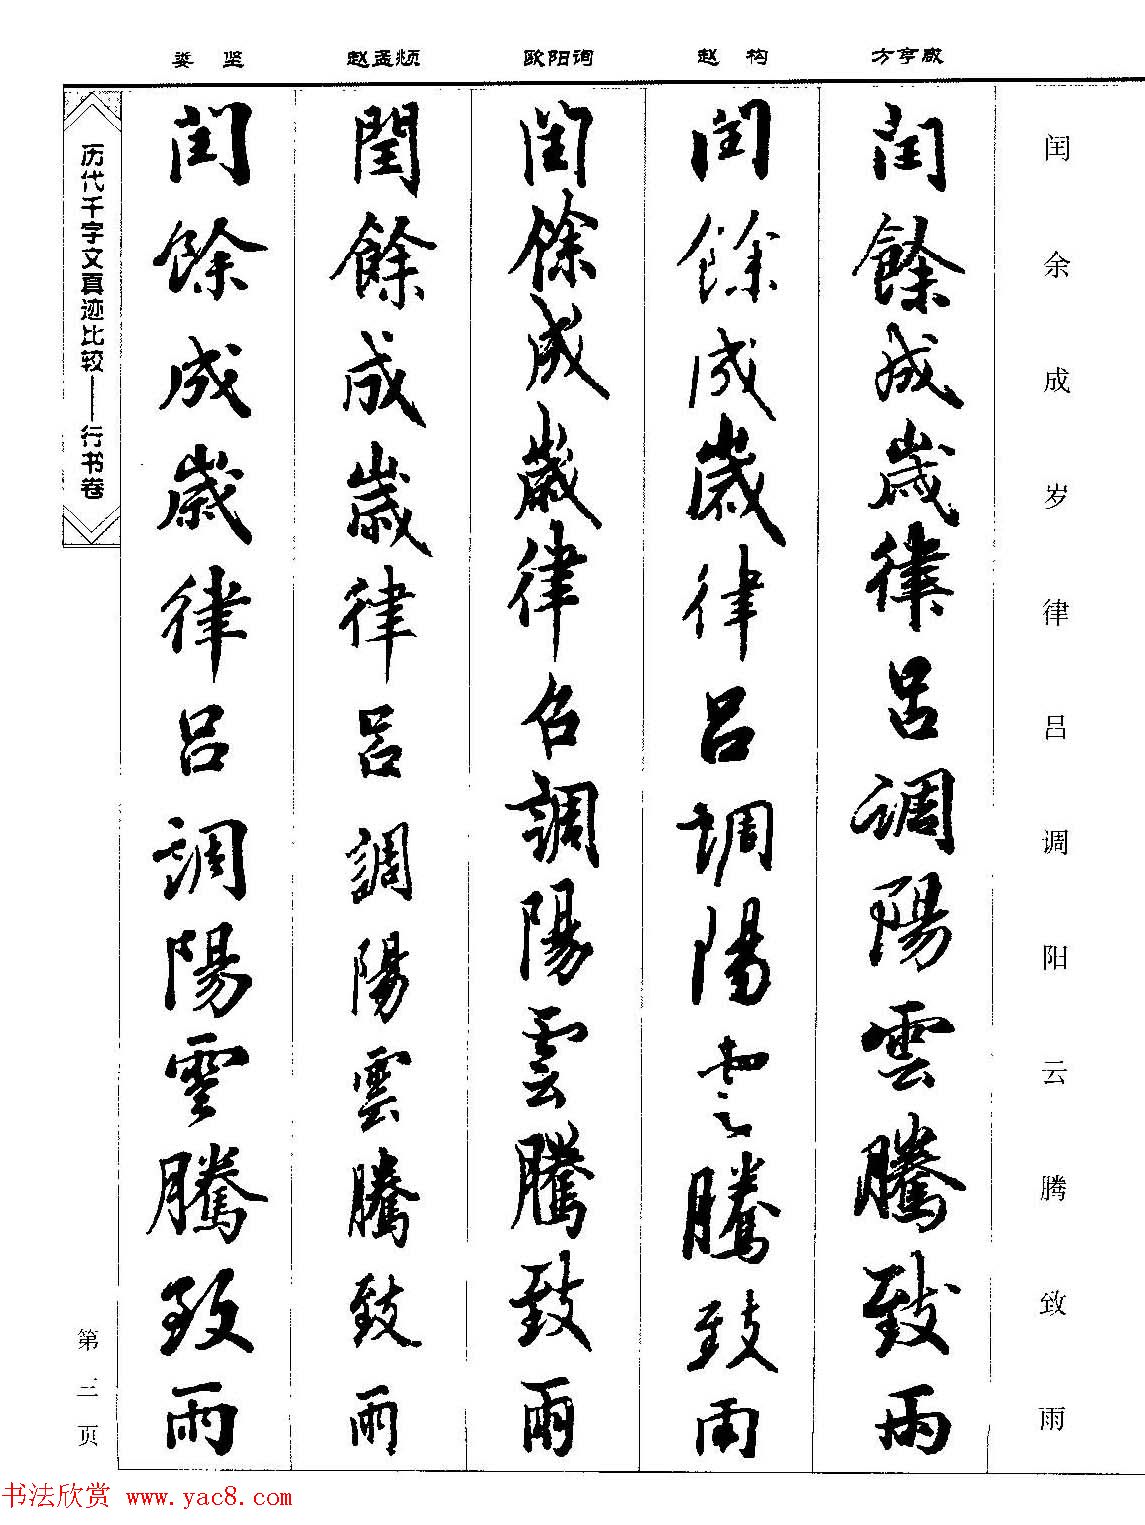 方亨咸
赵 构
欧阳询
赵孟頫
娄 坚
闰余成岁律吕调阳云腾致雨
閏餘成歲律呂調陽雲騰致雨
閏餘成歲律呂調陽雲騰致雨
閏餘成歲律召調陽雲騰致雨
閏餘成歲律呂調陽雲騰致雨
閏餘成歲律呂調陽雲騰致雨
历代千字文真迹比较——行书卷
第三页
书法欣赏 www.yac8.com